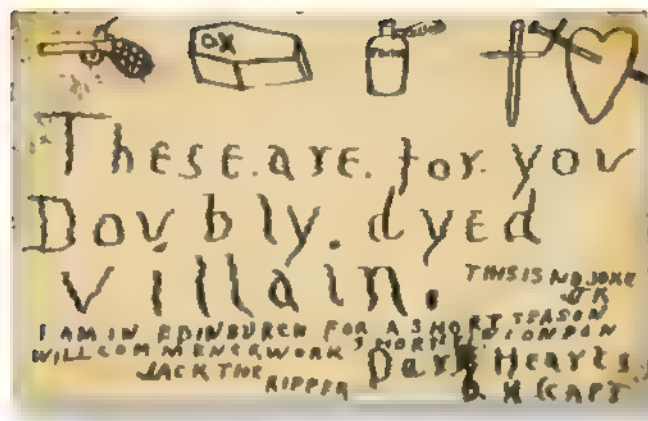 These.are.for.you
Doubly.dyed
villain.
THIS IS NO JOKE
I AM IN EDINBURGH FOR A SHORT
WILL COMMENCE WORK SHORTLY IN LONDON
JACK THE
RIPPER
Dark Hearts